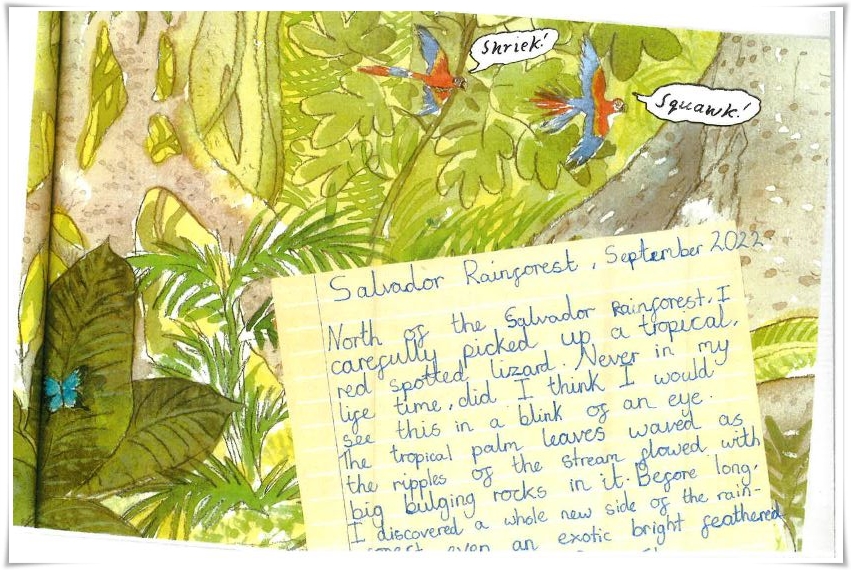 Shriek!
Squawk!
Salvador Rainforest, September 2022
North of the Salvador Rainforest, I
carefully picked up a tropical,
red spotted, lizard. Never in my
life time, did I think I would
see this in a blink of an eye.
The tropical palm leaves waved as
the ripples of the stream flowed with
big bulging rocks in it. Before long,
I discovered a whole new side of the rain-
even an exotic bright feathered